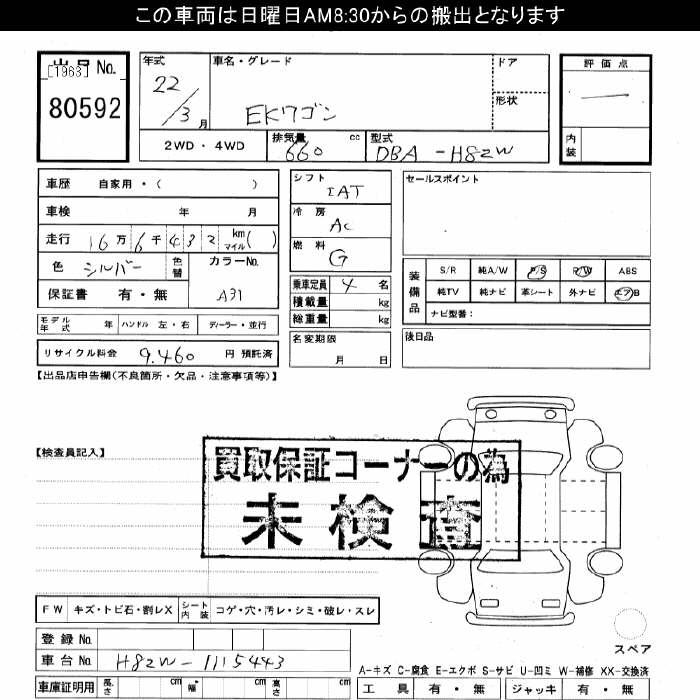 この車両は日曜日AM8:30からの搬出となります
出品 No.
[1963]
80592
年式 22/3月
車名・グレード EKワゴン
ドア
形状
評価点 —
内装
2WD・4WD
排気量 660 cc
型式 DBA-H82W
車歴 自家用・( )
車検 年 月
走行 16万6千432 km マイル( )
色 シルバー 色替
カラーNo. A31
保証書 有・無
シフト IAT
冷房 AC
燃料 G
乗車定員 4 名
積載量 kg
総重量 kg
名変期限 月 日
セールスポイント
装備品
S/R 純A/W P/S P/W ABS
純TV 純ナビ 革シート 外ナビ エアB
ナビ型番：
後日品
モデル年式 年 ハンドル 左・右 ディーラー・並行
リサイクル料金 9.460 円 預託済
【出品店申告欄(不良箇所・欠品・注意事項等)】
【検査員記入】
買取保証コーナーの為
未検査
FW キズ・トビ石・割レX シート内装 コゲ・穴・汚レ・シミ・破レ・スレ
登録 No.
車台 No. H82W-1115443
車庫証明用 長さ cm 幅 cm 高さ cm
スペア
A-キズ C-腐食 E-エクボ S-サビ U-凹ミ W-補修 XX-交換済
工具 有・無 ジャッキ 有・無